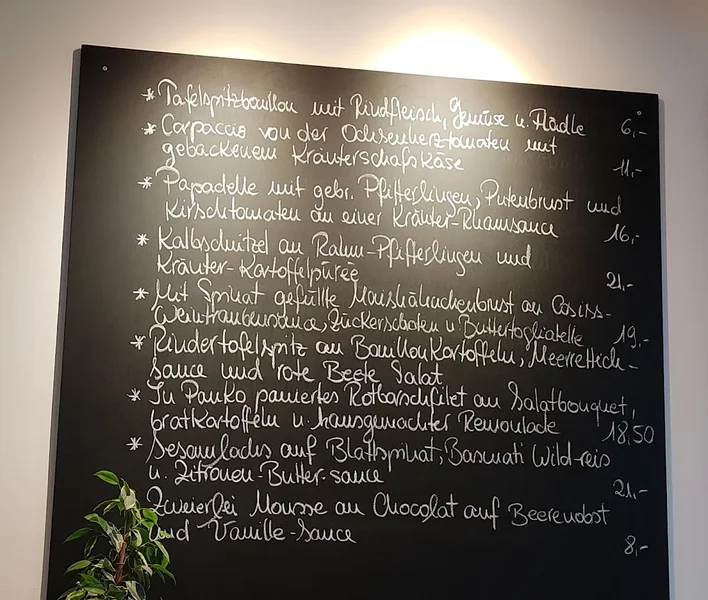 * Tafelspitzbouillon mit Rindfleisch, Gemüse u. Flädle 6,-
* Carpaccio von der Ochsenherztomaten mit
gebackenem Kräuterschafskäse 11,-
* Papadelle mit gebr. Pfifferlingen, Putenbrust und
Kirschtomaten an einer Kräuter-Rhamsauce 16,-
* Kalbschnitzel an Rahm-Pfifferlingen und
Kräuter-Kartoffelpürée 21,-
* Mit Spinat gefüllte Maishähnchenbrust an Casiss-
Weintraubensauce, Zuckerschoten u Buttertagliatelle 19,-
* Rindertafelspitz an Bouillonkartoffeln, Meerrettich-
sauce und rote Beete Salat
* In Panko paniertes Rotbarschfilet an Salatbouquet,
bratkartoffeln u. hausgemachter Remoulade 18,50
* Sesamlachs auf Blattspinat, Basmati Wild-reis
u. Zitronen-Butter-sauce 21,-
Zweierlei Mousse au Chocolat auf Beerenobst
und Vanille-Sauce 8,-